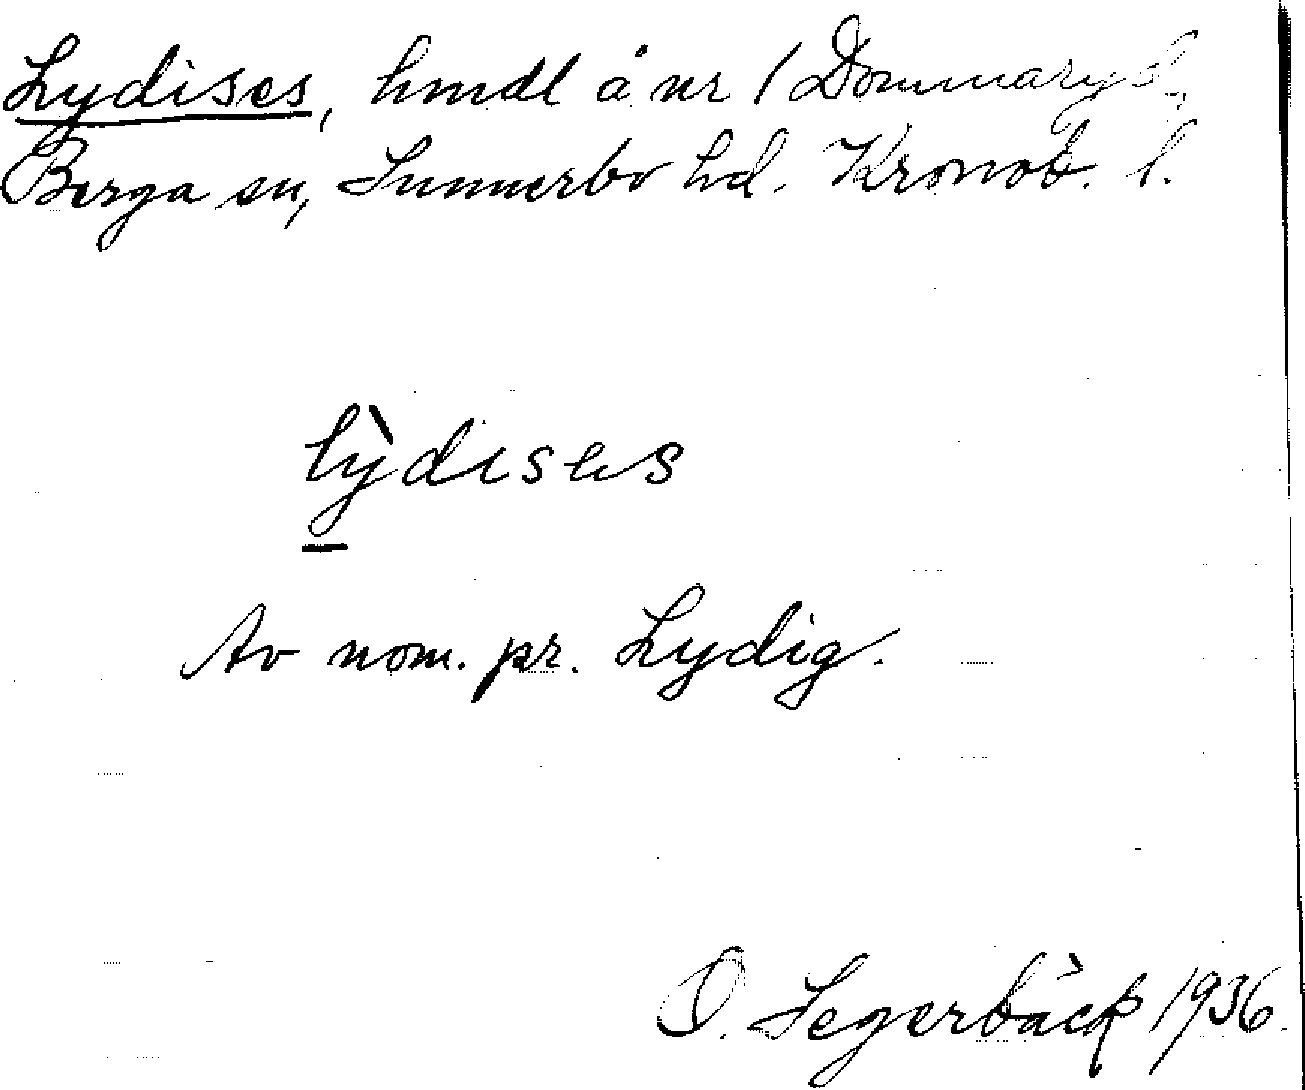 Lydises, hmdl å nr 1 Dommaryd,
Berga sn, Sunnerbo hd. Kronob. l.
lỳdises
Av nom. pr. Lydig.
O. Segerbäck 1936.